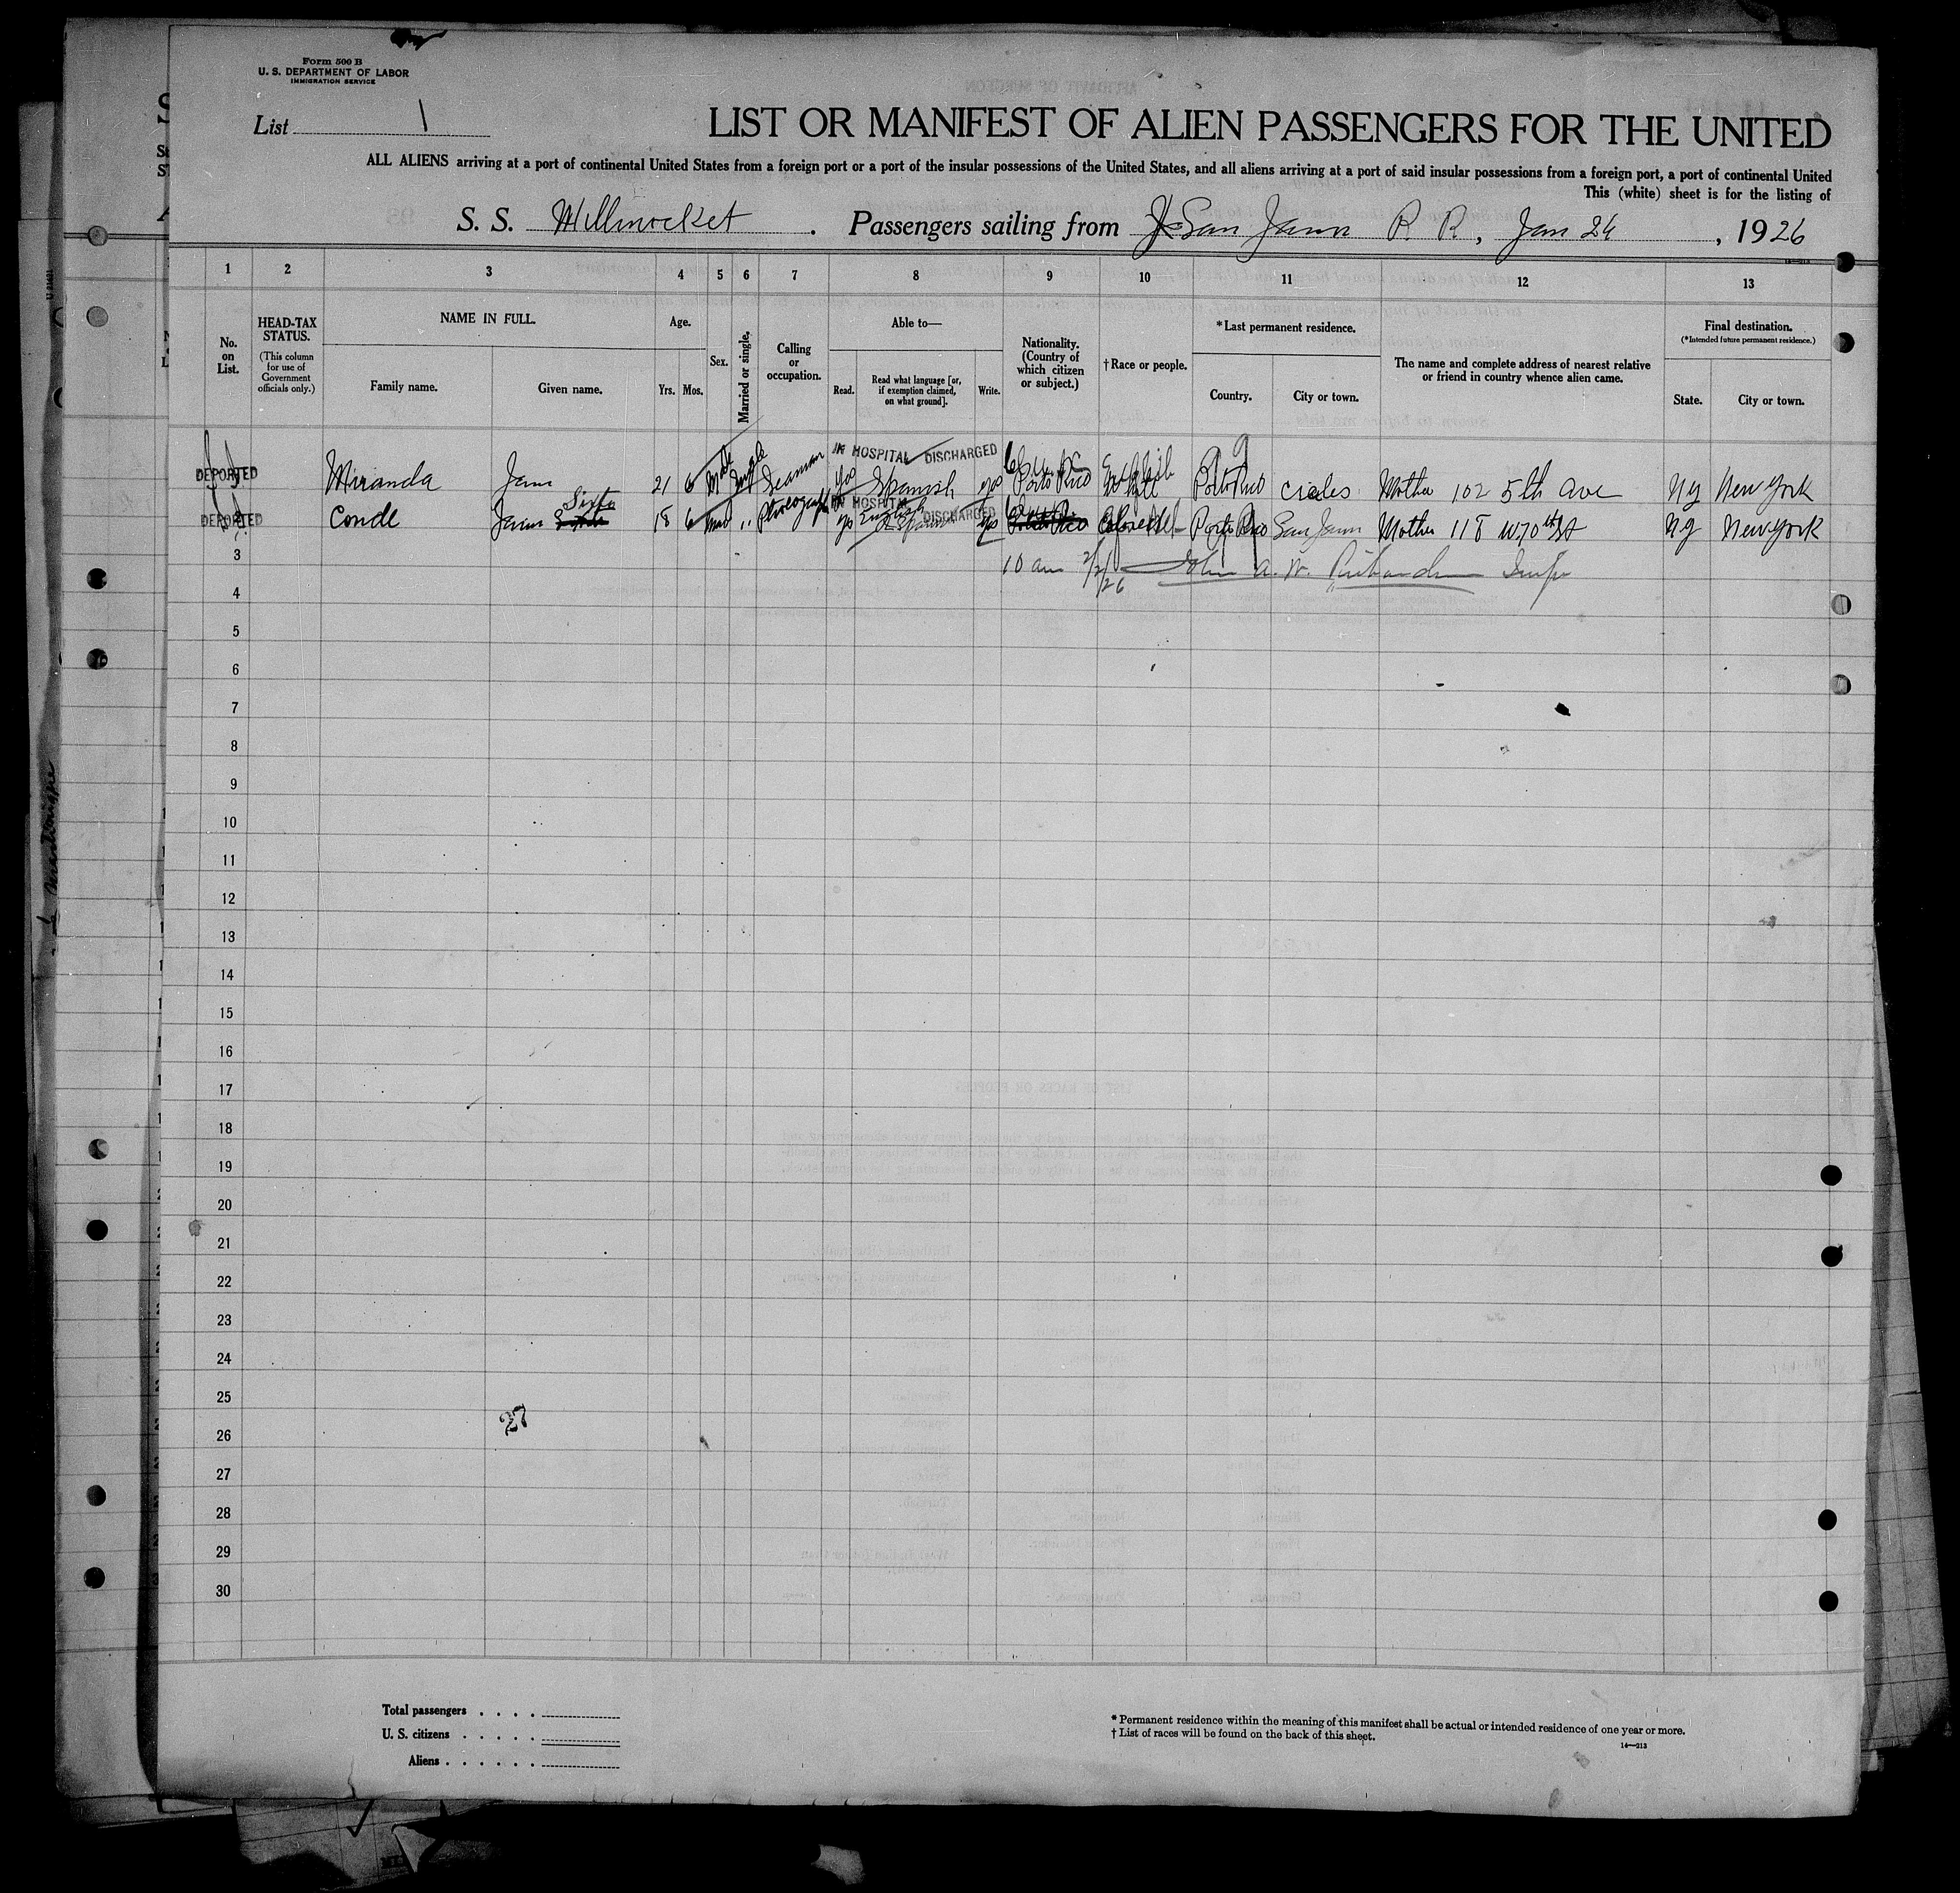 Form 500 B
U. S. DEPARTMENT OF LABOR
IMMIGRATION SERVICE
List 1
LIST OR MANIFEST OF ALIEN PASSENGERS FOR THE UNITED
ALL ALIENS arriving at a port of continental United States from a foreign port or a port of the insular possessions of the United States, and all aliens arriving at a port of said insular possessions from a foreign port, a port of continental United
This (white) sheet is for the listing of
S. S. Millinocket . Passengers sailing from San Juan P. R., Jan 26, 1926
1 2 3 4 5 6 7 8 9 10 11 12 13
No. on List.
HEAD-TAX STATUS.
(This column for use of Government officials only.)
NAME IN FULL.
Family name.
Given name.
Age.
Yrs. Mos.
Sex.
Married or single.
Calling or occupation.
Able to—
Read.
Read what language [or, if exemption claimed, on what ground].
Write.
Nationality.
(Country of which citizen or subject.)
† Race or people.
* Last permanent residence.
Country.
City or town.
The name and complete address of nearest relative or friend in country whence alien came.
Final destination.
(*Intended future permanent residence.)
State.
City or town.
IN HOSPITAL DISCHARGED
DEPORTED Miranda Juan 21 6 Single Seaman yes Spanish yes Porto Rico Porto Rico Ciales Mother 102 5th Ave NY New York
IN HOSPITAL DISCHARGED
DEPORTED Conde Juan Sixto 18 6 " yes English Spanish yes Porto Rico Porto Rico San Juan Mother 118 W 70th St NY New York
3 10 am 2/2/26 John A. W. Richardson Insp
4
5
6
7
8
9
10
11
12
13
14
15
16
17
18
19
20
21
22
23
24
25
27
26
27
28
29
30
Total passengers . . . .
U. S. citizens . . . . .
Aliens . . . . . .
* Permanent residence within the meaning of this manifest shall be actual or intended residence of one year or more.
† List of races will be found on the back of this sheet.
14—213